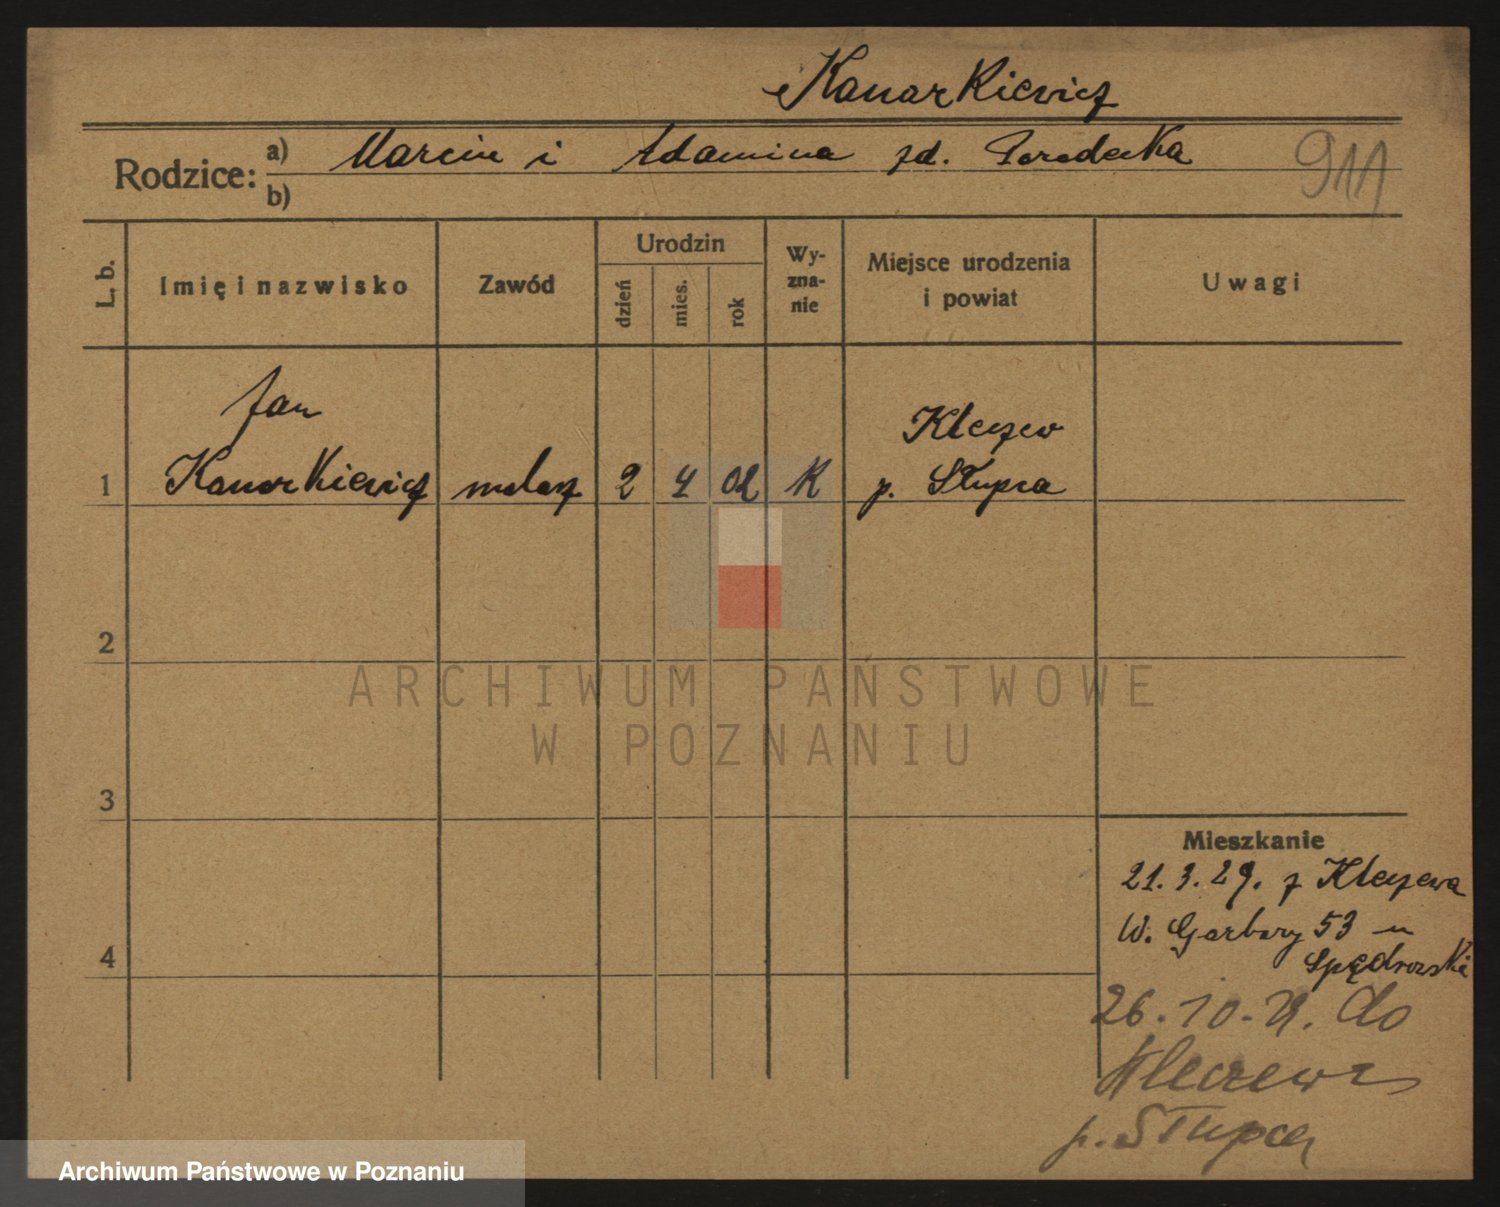 Kanarkiewicz
Rodzice: a) Marcin i Adamina zd. Porodecka
b)
911
L. b.
Imię i nazwisko
Zawód
Urodzin
dzień
mies.
rok
Wy-
zna-
nie
Miejsce urodzenia
i powiat
Uwagi
Jan
Kanarkiewicz
1
malarz
2
4
02
K
Kleczew
p. Słupca
2
3
4
ARCHIWUM PAŃSTWOWE
W POZNANIU
Mieszkanie
21.3.29. z Kleczewa
W. Garbary 53 u
26.10.29. do
Kleczewa
p. Słupca
Archiwum Państwowe w Poznaniu